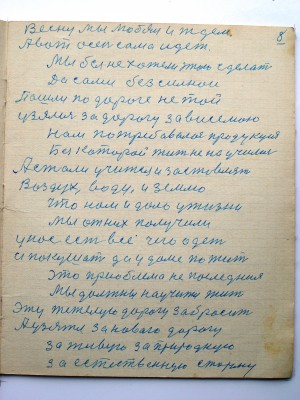 8
Весну мы любям и ждем
А вот осен сама идет.
Мы бы не хотели этого сделат
Да сами безсилнои
Пошли по дороге не той
узялис за дорогу зависемою
Нам потребавалас продукция
Бы которой жит не научилис
А стали учится и заставлят
Воздух, воду, и землю
что нам и дало у жизни
Мы от них получили
у нас ест всё чего одет
и покушат да и у доме пожит
Это приоблема не последния
Мы должны научится жит
Эту тежелую дорогу забросит
А узятся за новаю дорогу
за живую за природную
за естественную сторону